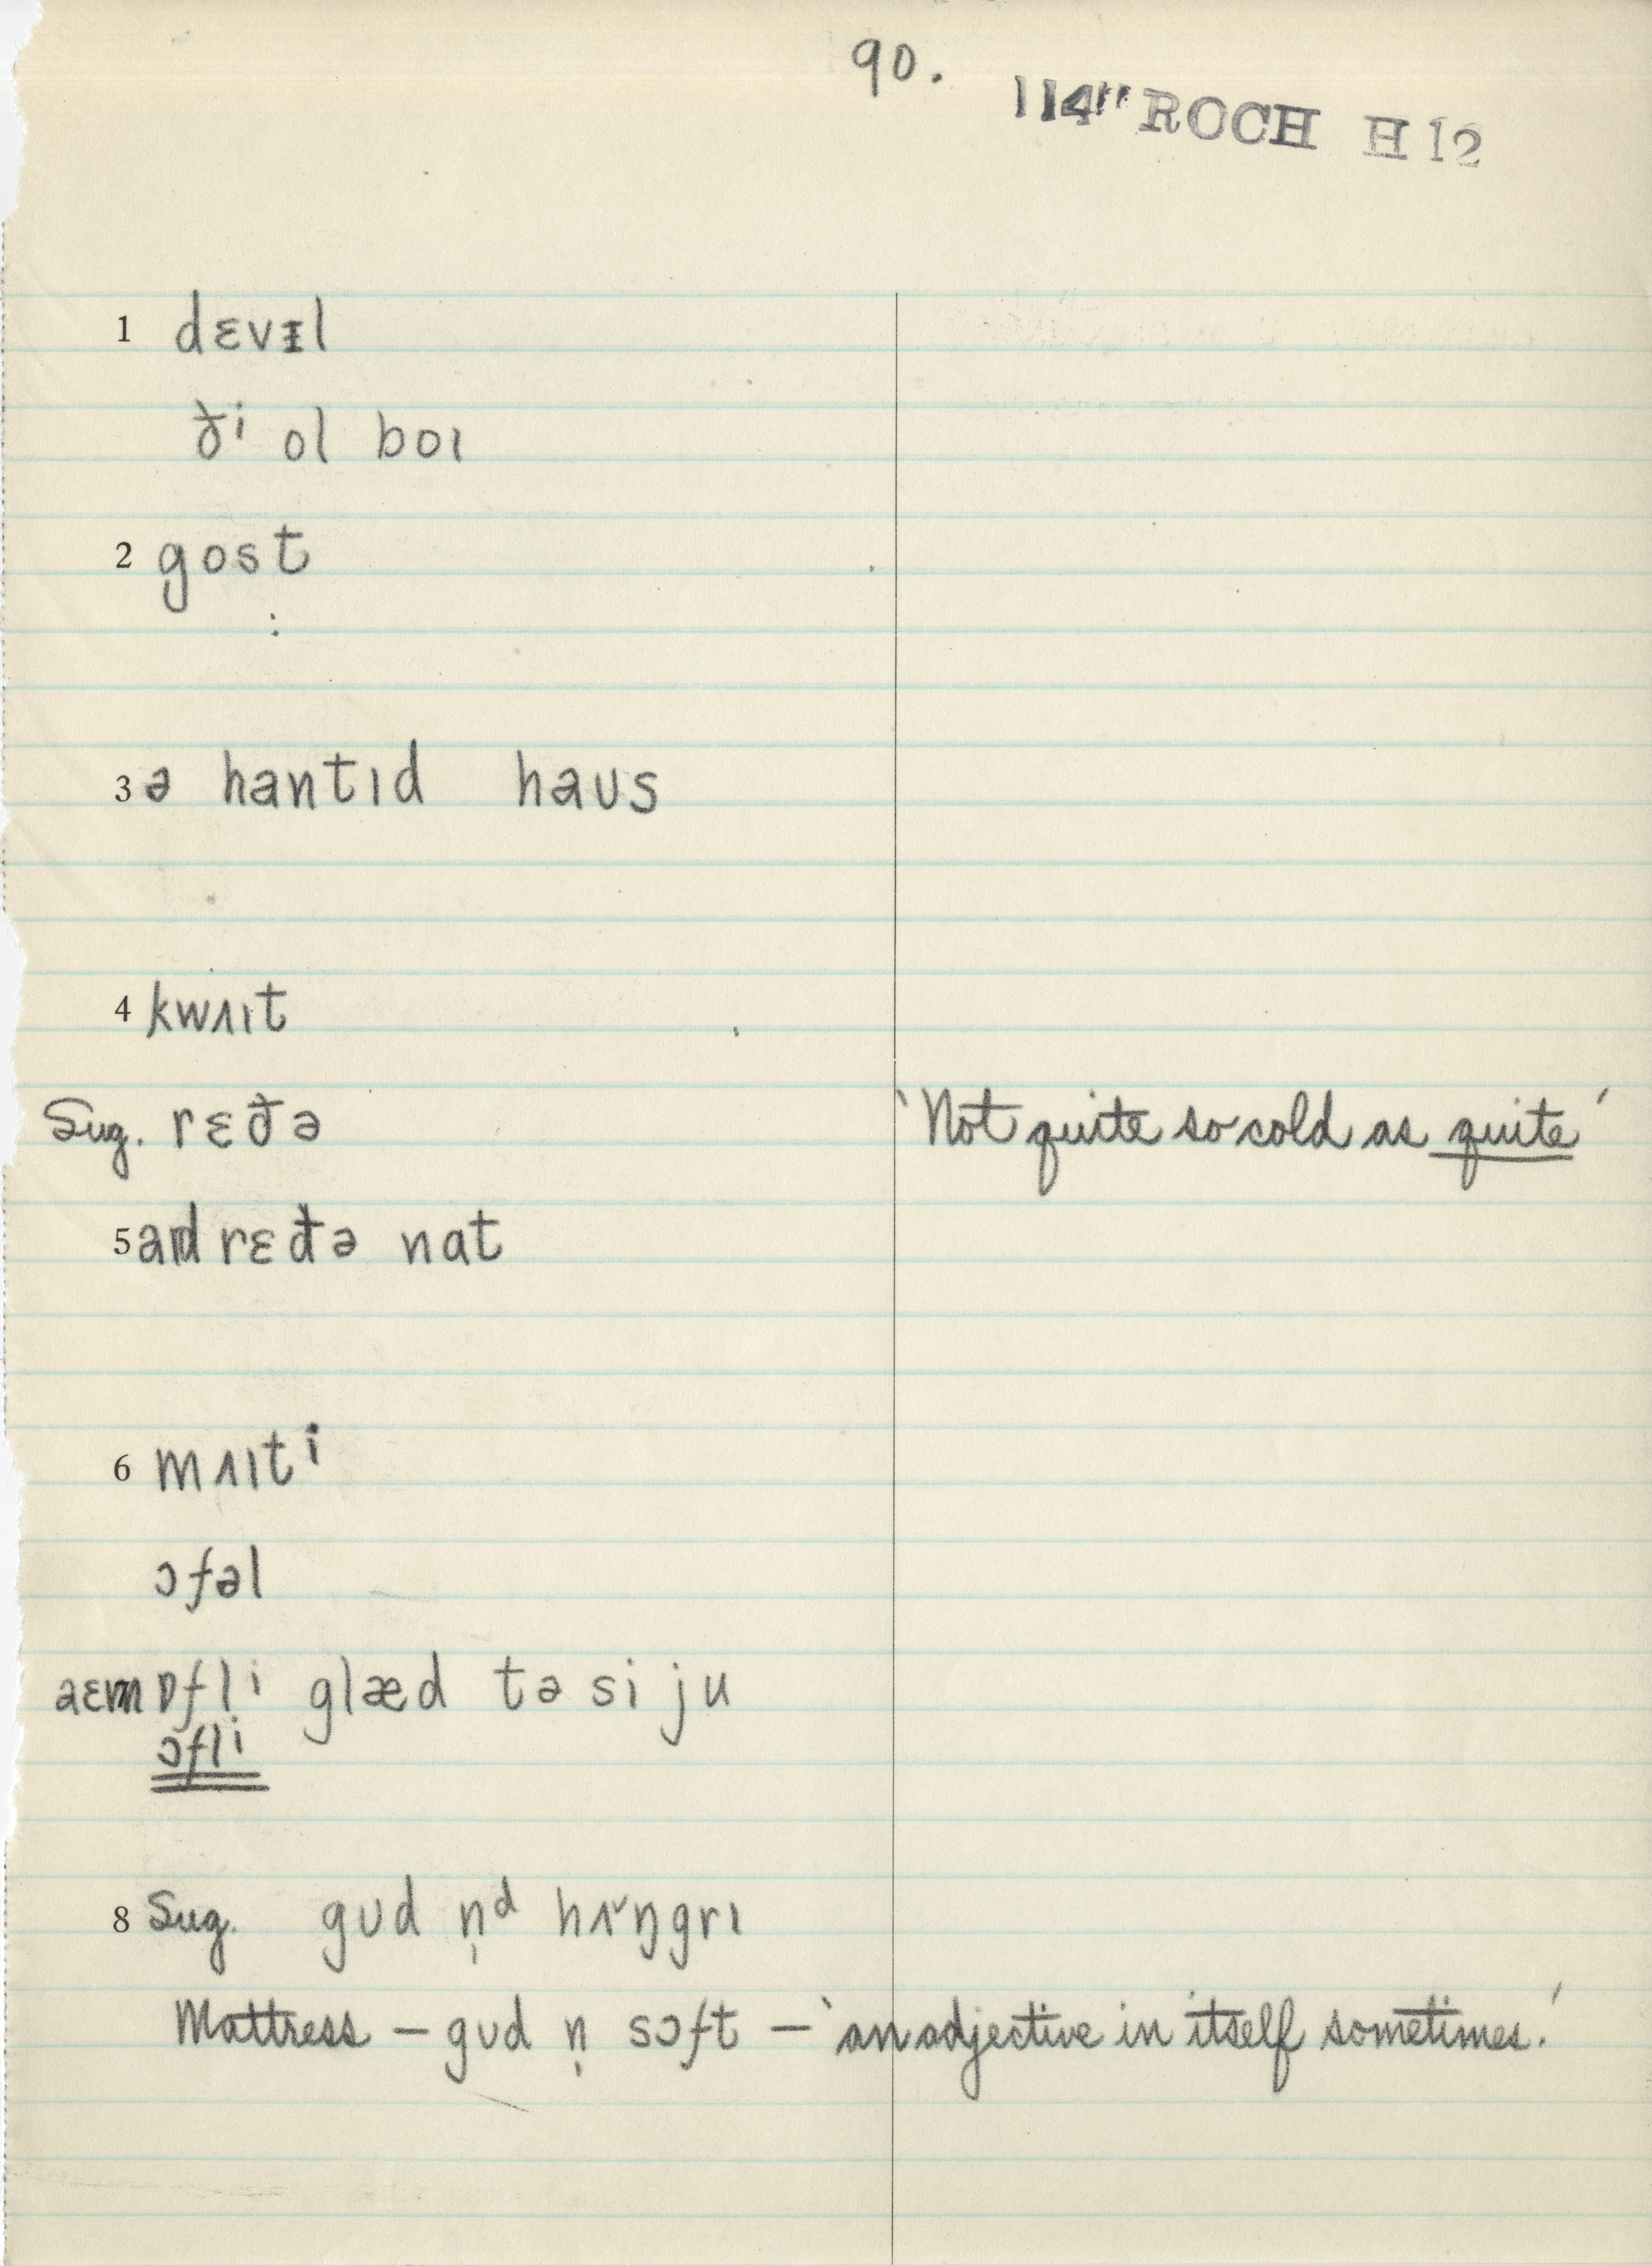 90.
114" ROCH H 12
1 dɛvɪl
ði ol boɪ
2 gost
3 ə hantɪd haʊs
4 kwʌɪt
Sug. rɛðə 'Not quite so cold as quite'
5 aɪd rɛðə nat
6 mʌɪti
ɔfəl
aɛm ɒfli glæd tə si ju
ɔfli
8 Sug. gʊd n̩d hʌ˅ŋgrɪ
Mattress – gʊd n̩ sɔft – 'an adjective in itself sometimes.'